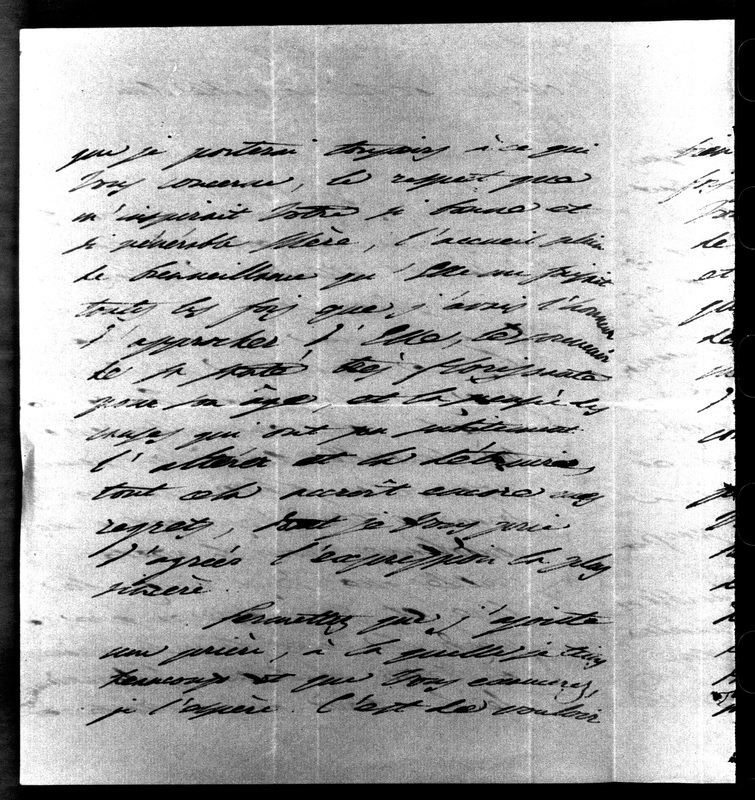 que je porterai toujours à ce qui
Vous concerne, le respect que
m'inspirait Votre si bonne et
si vénérable Mère, l'accueil plein
de bienveillance qu'Elle me faisait
toutes les fois que j'avois l'honneur
d'approcher d'Elle, le souvenir
de sa santé très florissante
pour son âge, et la pensée des
causes qui ont pu subitement
l'altérer et la détruire,
tout cela accroît encore mes
regrets, dont je Vous prie
d'agréer l'expression la plus
sincère.
Permettez que j'ajoute
une prière, à la quelle je tiens
beaucoup et que Vous exaucerez,
je l'espère. C'est de vouloir